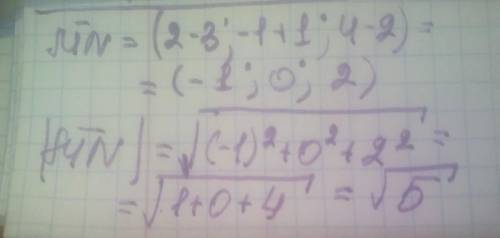 M̅N̅ = (2-3; -1+1; 4-2) =
= (-1; 0; 2)
|M̅N̅| = √((-1)² + 0² + 2²) =
= √(1+0+4) = √5